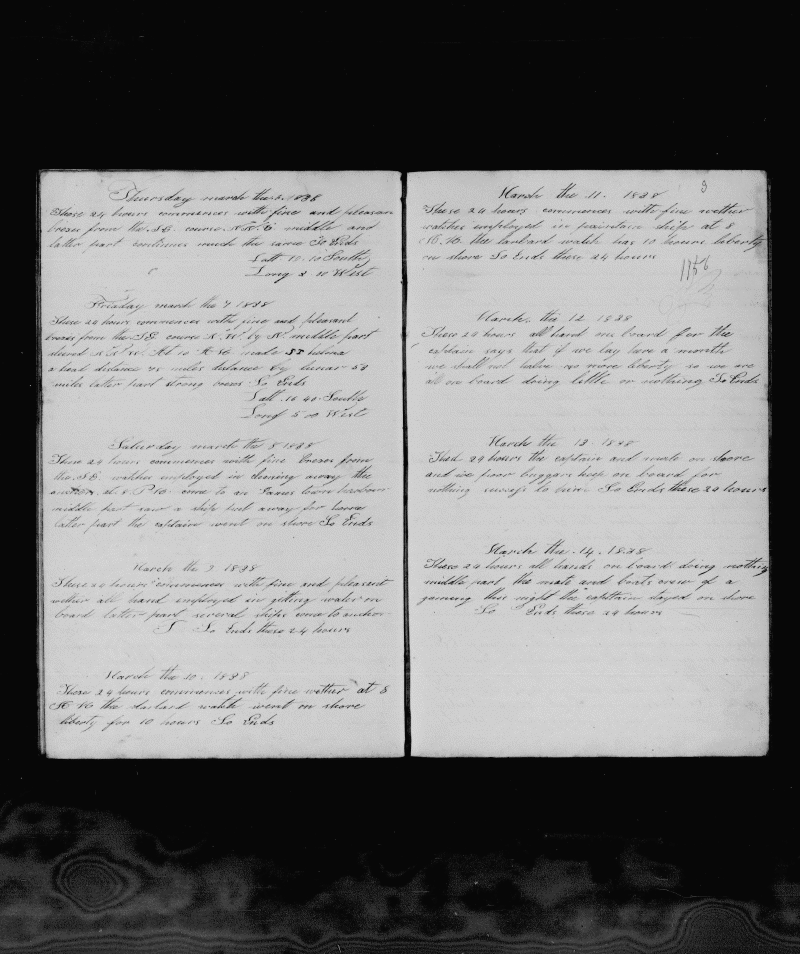 Thursday march the 6 1838
These 24 hours commences with fine and pleasan
breses from the .S.E. course N.N.W middle and
latter part continues much the same So Ends
Latt 17.10 South
Long 2.10 West
Friaday march the 7 1838
These 24 hours commences with fine and pleasant
breses from the S.E. course N.W. by N. middle part
stered N.N.W. At 10 A.M. made
a head distance 75 miles distance by lunar 58
miles latter part strong breses So Ends
Latt .16 40 South
Long 5.00 West
Saturday march the 8 1838
These 24 hours commences with fine breses from
the .S.E. watches employed in clearing away the
anchors. at 8. P.M. come to an James town harbour
middle part saw a ship last away for home
latter part the captain went on shore So Ends
March the 9 1838
These 24 hours commences with fine and pleasant
wether all hand employed in gitting water on
board latter part several ships come to anchor
So Ends these 24 hours
March the 10. 1838
These 24 hours commences with fine wether at 8
A.M the starbard watch went on shore
liberty for 10 hours So Ends
3
March the 11. 1838
These 24 hours commences with fine wether
watches employed in paintain ship at 8
A.M. the larbard watch has 10 hours liberty
on shore So Ends these 24 hours
1156
March. the 12 1838
These 24 hours all hand on board for the
captain says that if we lay here a month
we shall not have no more liberty so we are
all on board doing little or nothing So Ends
March the 13. 1838
These 24 hours the captain and mate on shore
and we poor buggars keep on board for
nothing So Ends these 24 hours
March the .14. 1838
These 24 hours all hands on board doing nothing
middle part the mate and boats crew of a
gaming this night the capttain stayed on shore
So Ends these 24 hours